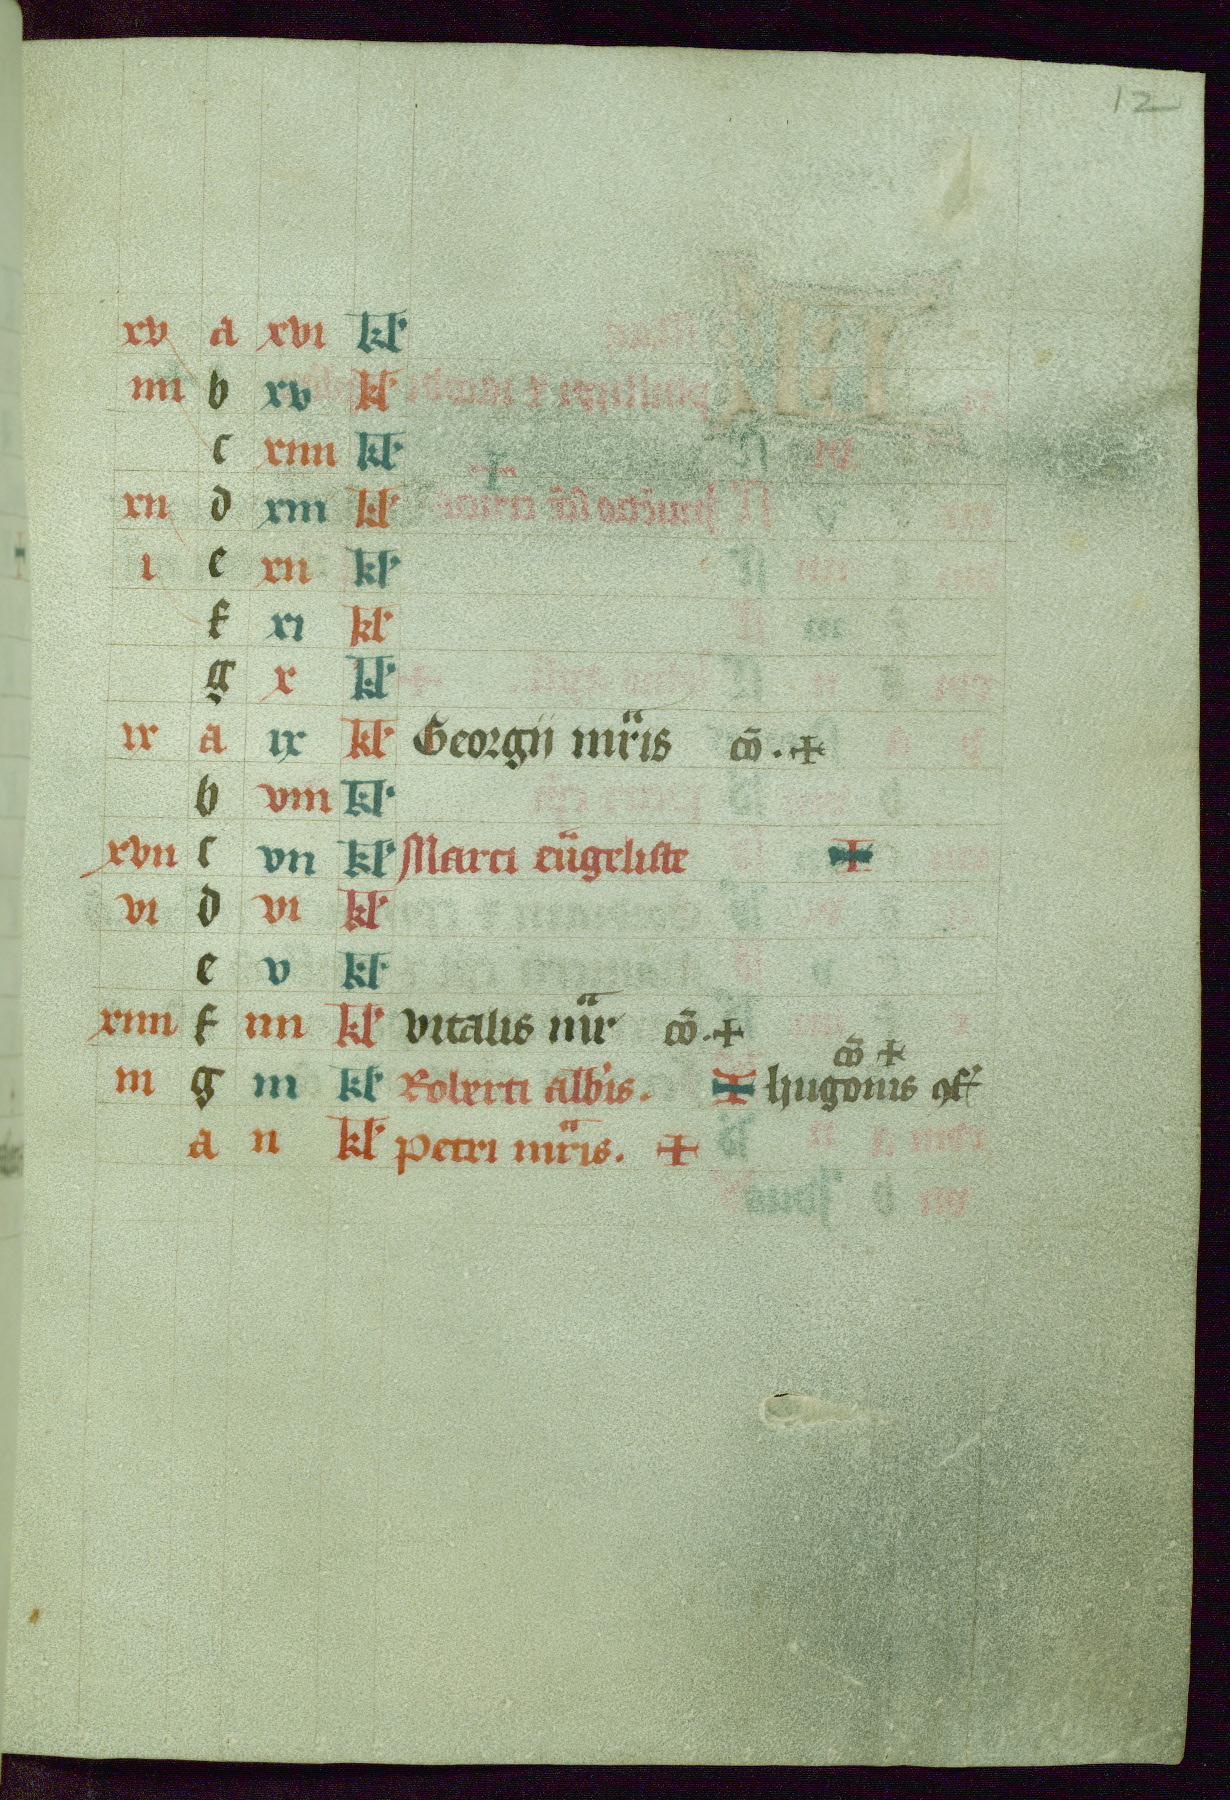 12
xv a xvi kl'
iiii b xv kl'
c xiiii kl'
xii d xiii kl'
i e xii kl'
f xi kl'
g x kl'
ix a ix kl' Georgii mr̃is cõ. +
b viii kl'
xvii c vii kl' Marci eũgeliste +
vi d vi kl'
e v kl'
xiiii f iiii kl' vitalis mr̃ cõ. +
cõ +
iii g iii kl' Roberti abb'is. + hugonis ꝯf'
a ii kl' petri mr̃is. +